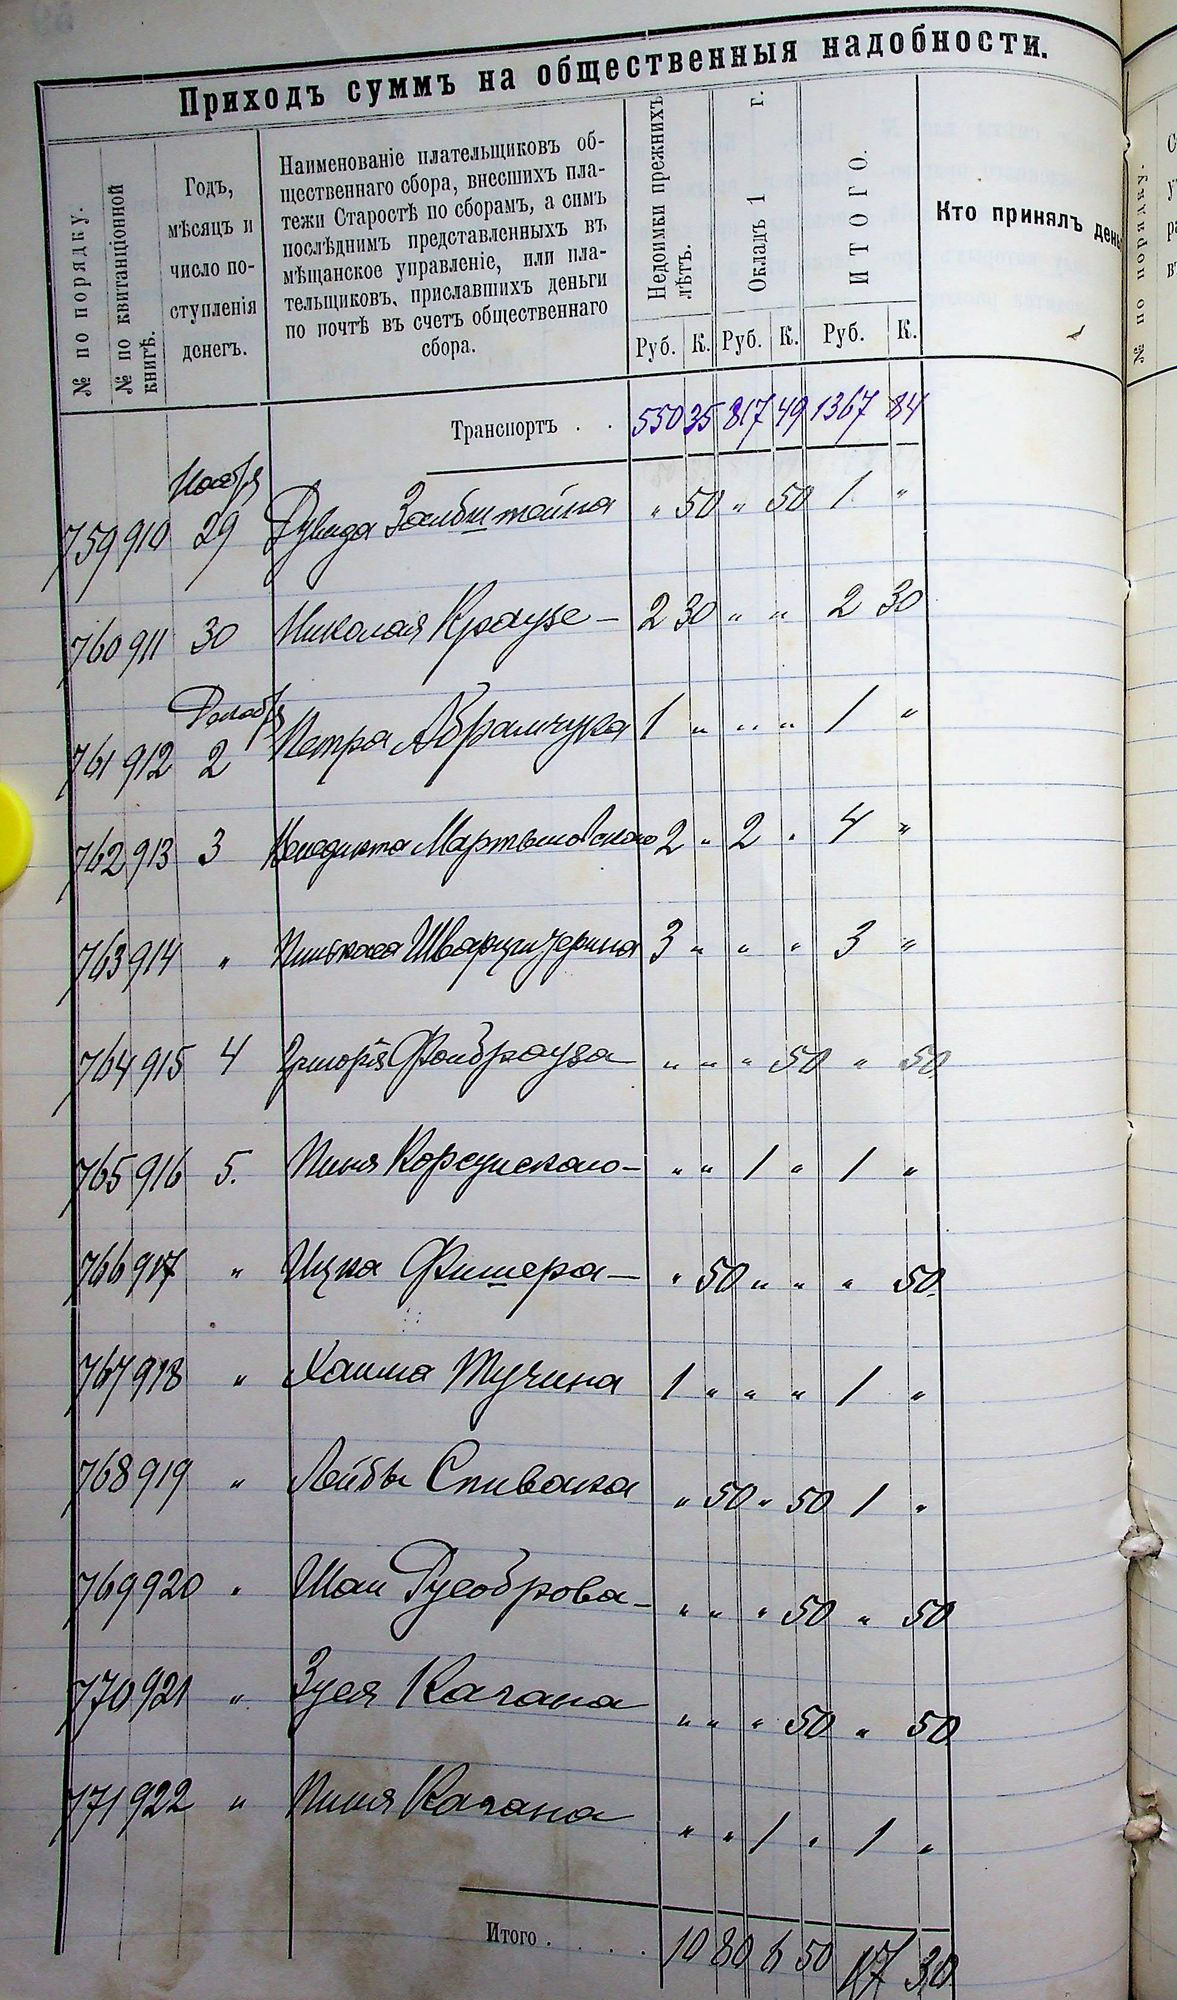 Приходъ суммъ на общественныя надобности.
№ по порядку.
№ по квитанціонной
книгѣ.
Годъ,
мѣсяцъ и
число по-
ступленія
денегъ.
Наименованіе плательщиковъ об-
щественнаго сбора, внесшихъ пла-
тежи Старостѣ по сборамъ, а симъ
послѣднимъ представленныхъ въ
мѣщанское управленіе, или пла-
тельщиковъ, приславшихъ деньги
по почтѣ въ счетъ общественнаго
сбора.
Недоимки прежнихъ
лѣтъ.
Окладъ 1 г.
ИТОГО.
Кто принялъ день
Руб. К. Руб. К. Руб. К.
Транспортъ . . 550 35 817 49 1367 84
Ноября
759 910 29 " 50 " 50 1 "
760 911 30 Николая Краузе — 2 30 " " 2 30
Декабря
761 912 2 Петра Абрамчука 1 " " " 1 "
762 913 3 Мартыновскаго 2 " 2 " 4 "
763 914 " 3 " " " 3 "
764 915 4 Григорія " " " 50 " 50
765 916 5. Пиня Корсунскаго — " " 1 " 1 "
766 917 " Ицка Фишера — " 50 " " " 50.
767 918 " Хаима Тучина 1 " " " 1 "
768 919 " Лейбы Спивака " 50 " 50 1 "
769 920 " " " " 50 " 50
770 921 " Зуся Кагана " " " 50 " 50
771 922 " Пиня Кагана " " 1 " 1 "
Итого . . . . 10 80 6 50 17 30
№ по порядку.